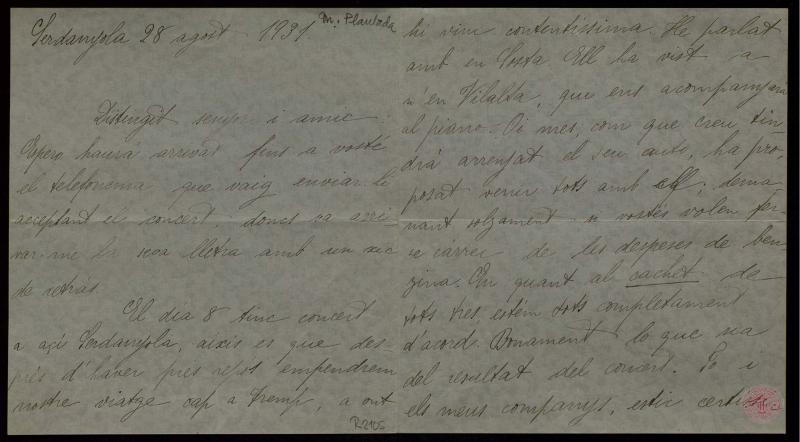 Serdanyola 28 agost 1931
M. Plantada
Distingit senyor i amic:
Espero haurà arrivat fins a vostè
el telefonema que vaig enviar-li
acceptant el concert; doncs va arri-
var-me la seva lletra amb un xic
de retràs.
El dia 8 tinc concert
a açis Serdanyola, aixís es que des-
prés d'haver pres repòs empendrem
nostre viatge cap a Tremp, a ont
R2105
hi vinc contentissima. He parlat
amb en Costa. Ell ha vist a
n'en Vilalta, que ens acompanyarà
al piano. Oi mes, com que creu tin-
drà arrenjat el seu auto, ha pro-
posat venir tots amb ell; dema-
nant solzament si vostès volen fer-
se càrrec de les despeses de ben-
zina. En quant al cachet de
tots tres, estèm tots completament
d'acord. Bonament lo que sia
del resultat del concert. Jo i
els meus companys, estic certissi